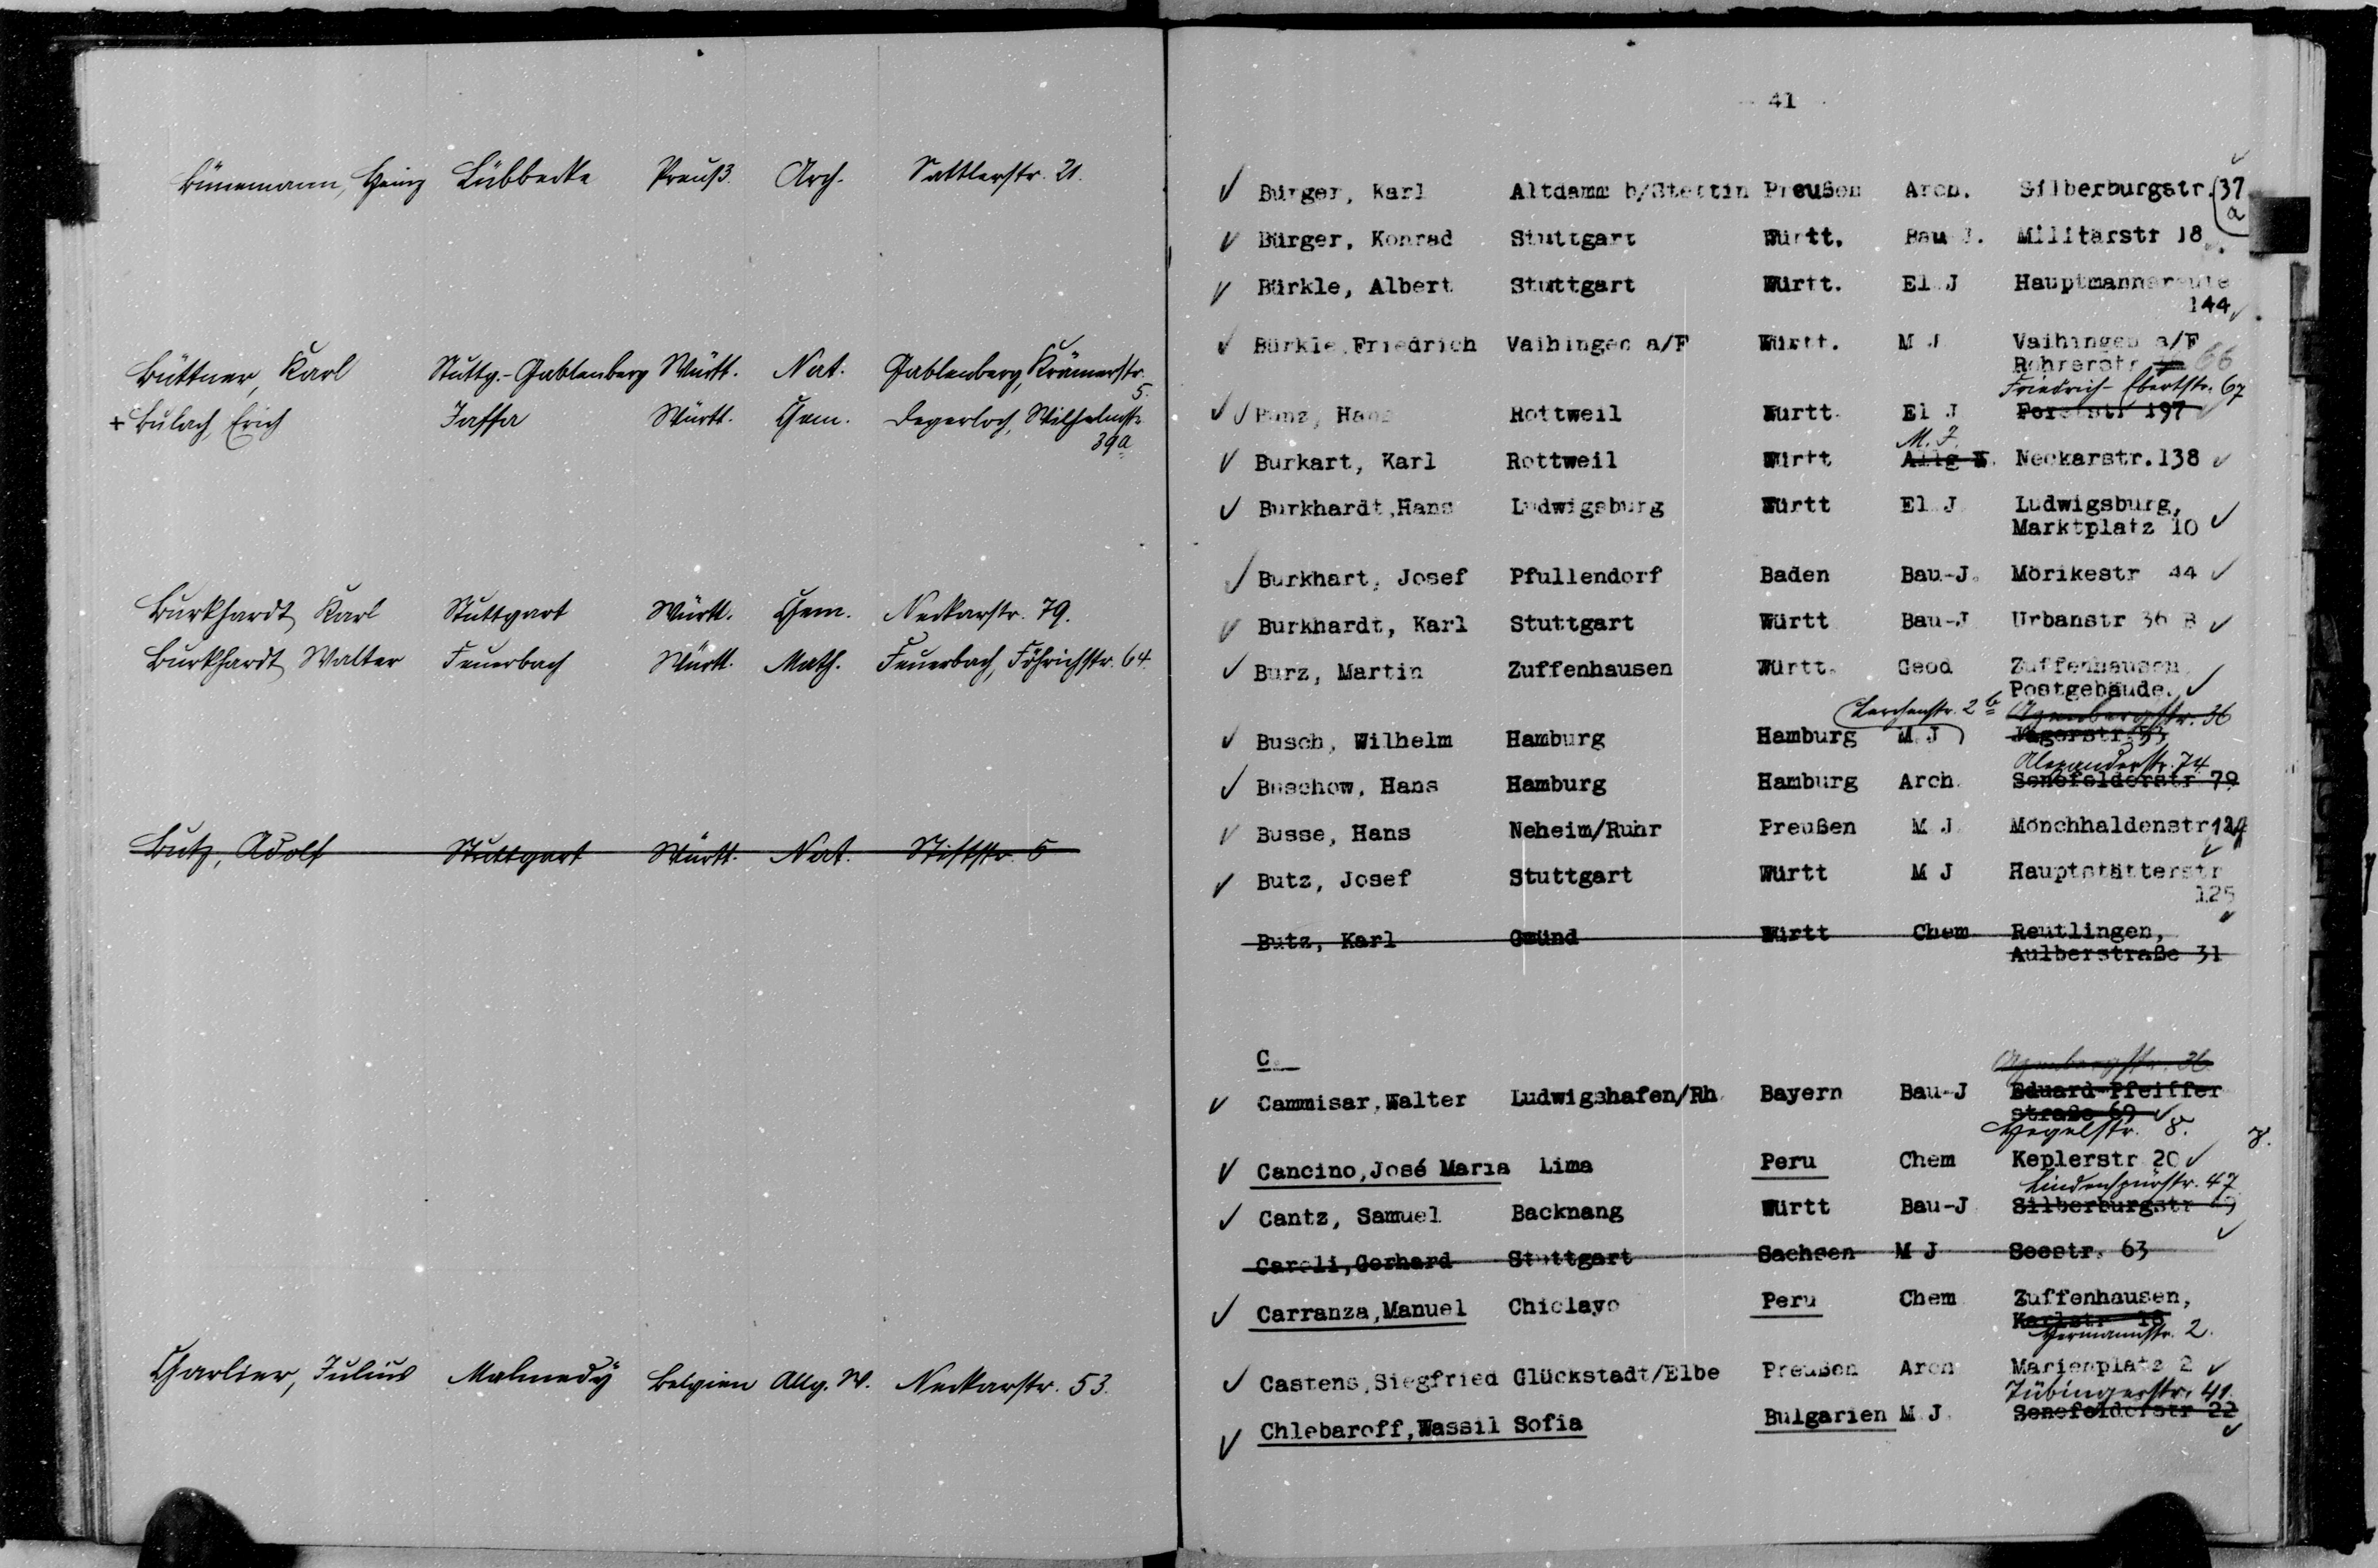 Bünemann, Heinz Lübbecke Preuß. Arch. Sattlerstr. 21.
Büttner, Karl Stuttg.-Gablenberg Württ. Nat. Gablenberg, Krämerstr.
5.
+ Bulach, Erich Jaffa Württ. Chem. Degerloch, Wilhelmstr.
39a
Burkhardt Karl Stuttgart Württ. Chem. Neckarstr. 79.
Burkhardt Walter Feuerbach Württ. Math. Feuerbach, Föhrichstr. 64.
Butz, Adolf Stuttgart Württ. Nat. Stiftstr. 5
Charlier, Julius Malmedy Belgien Allg. W. Neckarstr. 53.
41
✓ Bürger, Karl Altdamm b/Stettin Preußen Arch. Silberburgstr. 37
a
✓ Bürger, Konrad Stuttgart Württ. Bau J. Militärstr 18
✓ Bürkle, Albert Stuttgart Württ. El J Hauptmannsreute
144
✓ Bürkle, Friedrich Vaihingen a/F Württ. M J Vaihingen a/F
Rohrerstr 66
Friedrich-Ebertstr. 67
✓ Hans Rottweil Württ. El J Forststr 197
M. J.
✓ Burkart, Karl Rottweil Württ Allg W. Neckarstr. 138
✓ Burkhardt, Hans Ludwigsburg Württ El J Ludwigsburg,
Marktplatz 10
✓ Burkhart, Josef Pfullendorf Baden Bau-J. Mörikestr 44
✓ Burkhardt, Karl Stuttgart Württ Bau-J Urbanstr 36 B
✓ Burz, Martin Zuffenhausen Württ. Geod Zuffenhausen
Postgebäude.
Lerchenstr. 2b Azenbergstr. 36
✓ Busch, Wilhelm Hamburg Hamburg M J Jägerstr. 53
Alexanderstr. 74
✓ Buschow, Hans Hamburg Hamburg Arch. Senefelderstr 79
✓ Busse, Hans Neheim/Ruhr Preußen M J Mönchhaldenstr
✓ Butz, Josef Stuttgart Württ M J Hauptstätterstr
125
Butz, Karl Gmünd Württ Chem Reutlingen,
Aulberstraße 31
C.
Azenbergstr. 36
✓ Cammisar, Walter Ludwigshafen/Rh. Bayern Bau-J Eduard-Pfeiffer
straße 69
Hegelstr. 8. 8.
✓ Cancino, José Maria Lima Peru Chem Keplerstr 20
Lindenspürstr. 47
✓ Cantz, Samuel Backnang Württ Bau-J Silberburgstr
Caroli, Gerhard Stuttgart Sachsen M J Seestr. 63
✓ Carranza, Manuel Chiclayo Peru Chem Zuffenhausen,
Karlstr 18
Hermannstr. 2.
✓ Castens, Siegfried Glückstadt/Elbe Preußen Arch Marienplatz 2
Tübingerstr. 41.
✓ Chlebaroff, Wassil Sofia Bulgarien M J. Senefelderstr 22